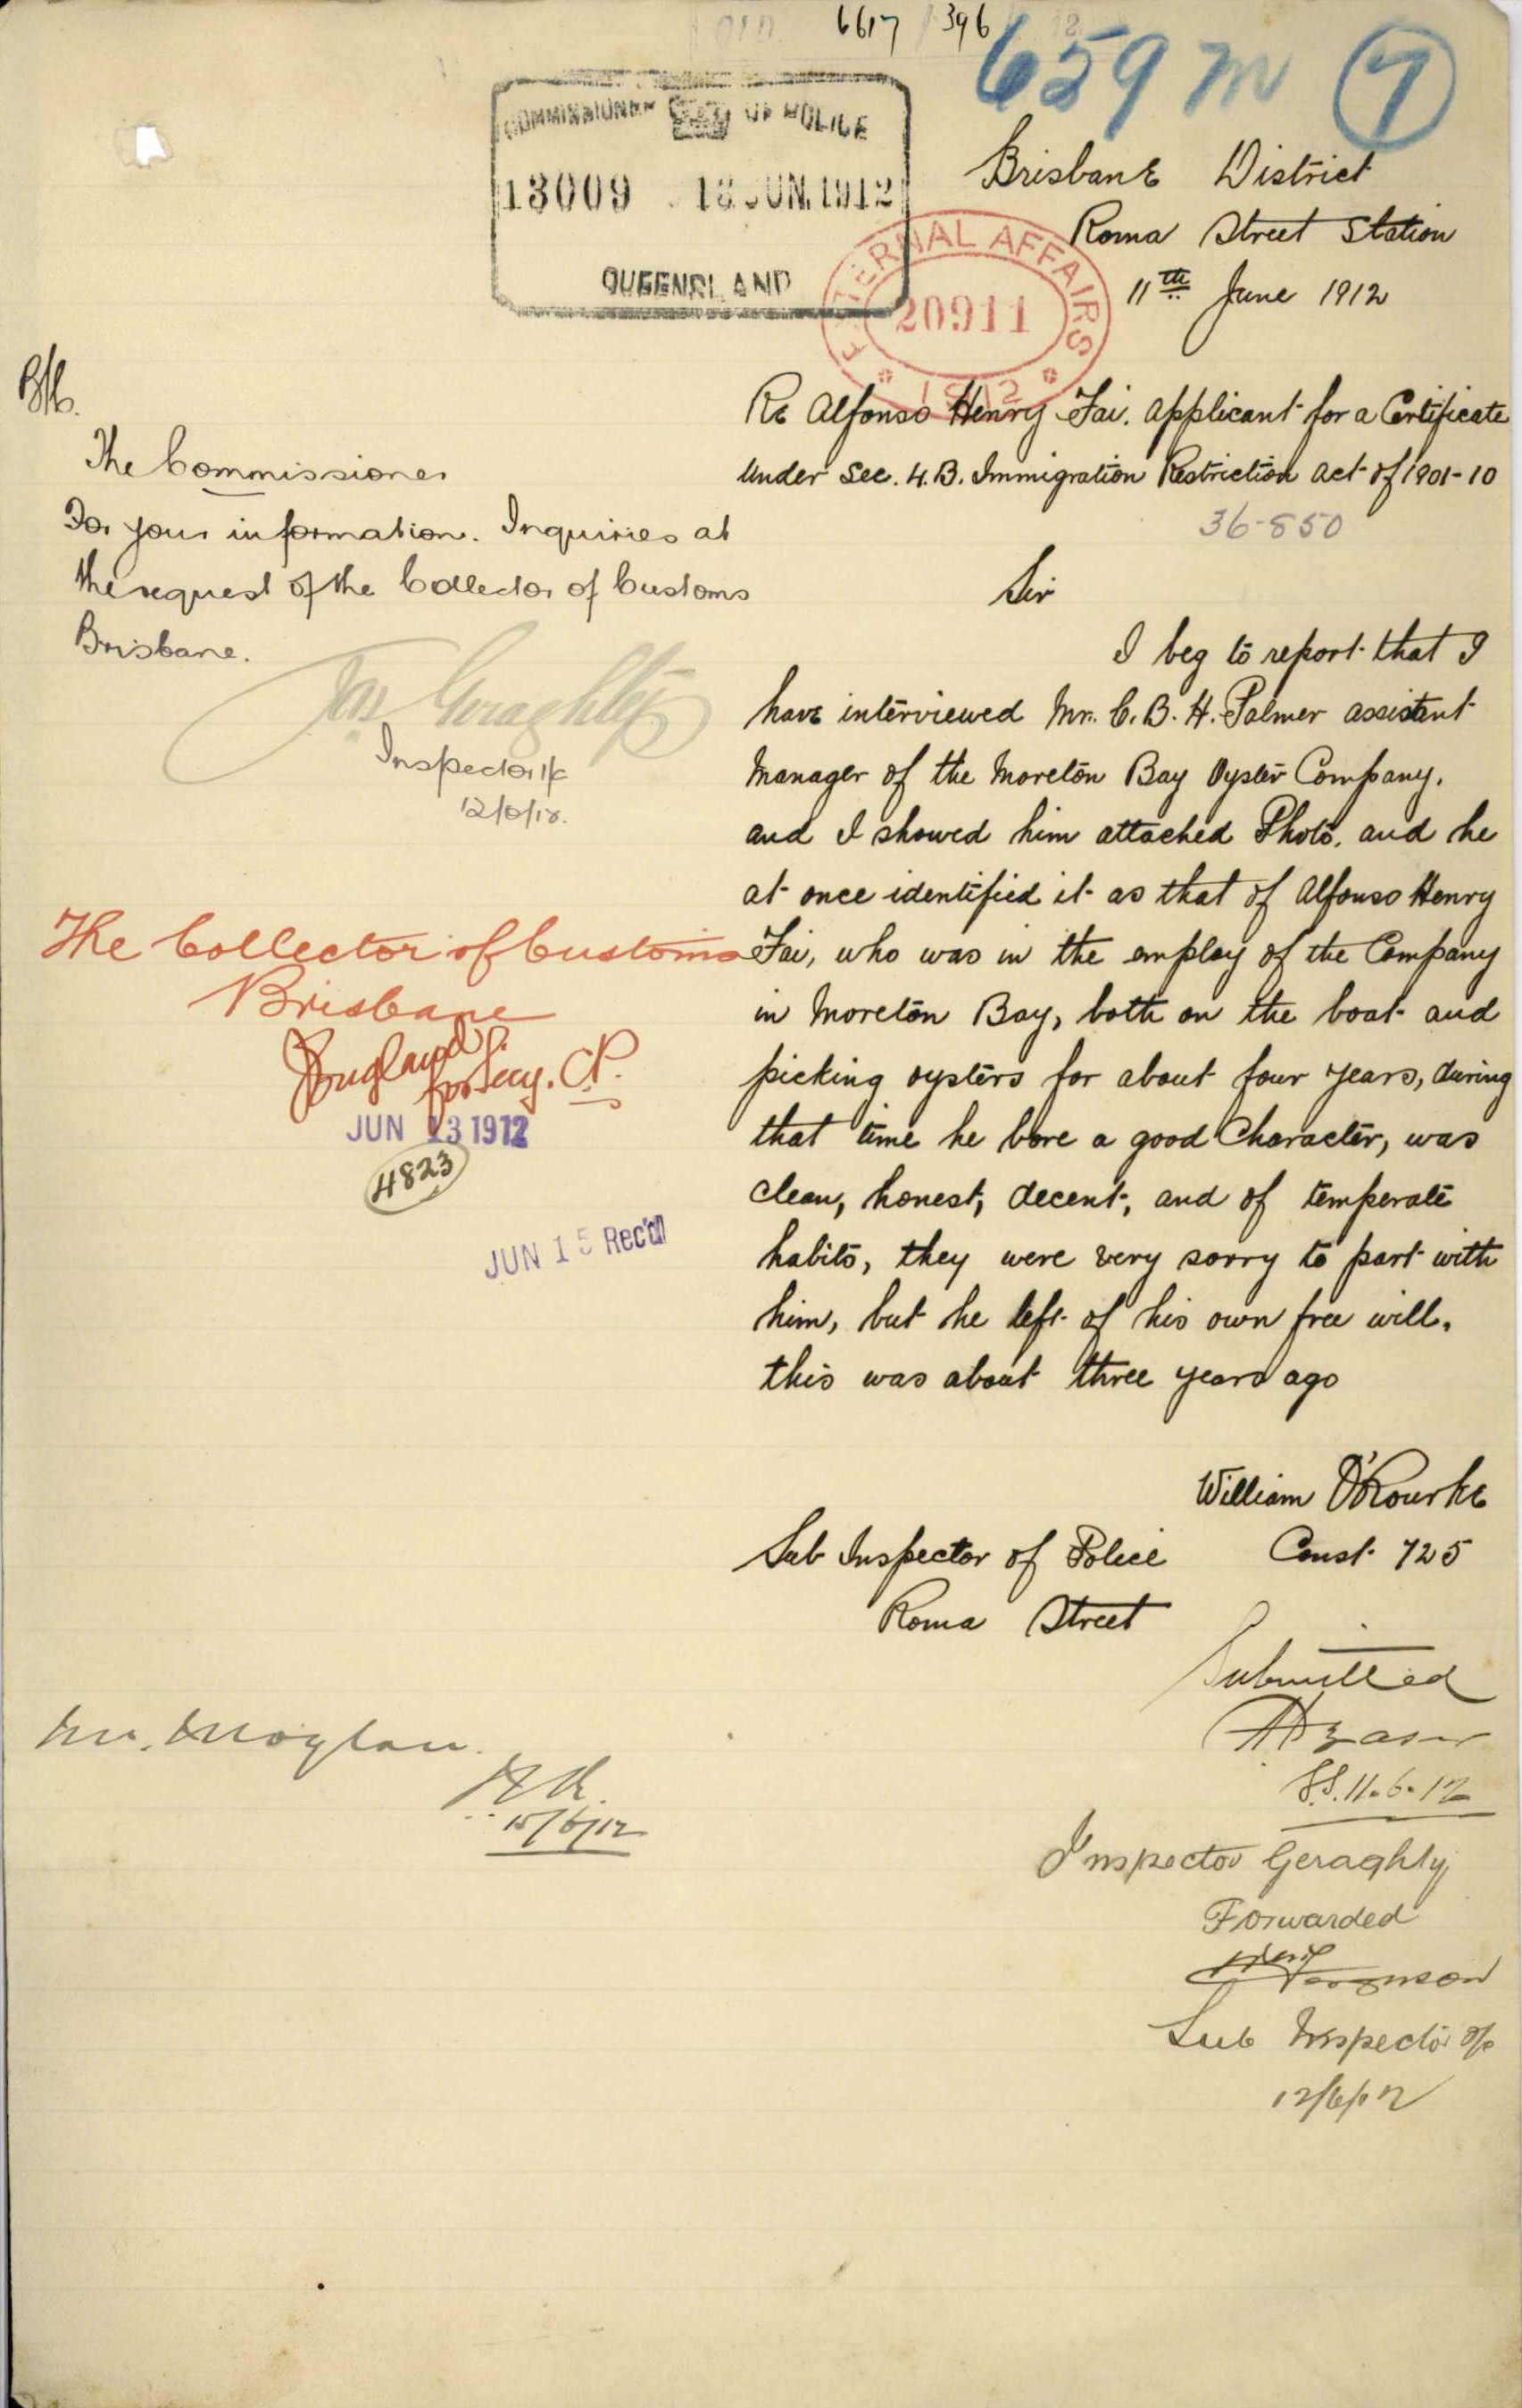 6617 / 396
659 M 7
COMMISSIONER OF POLICE
13009 13 JUN. 1912
QUEENSLAND
EXTERNAL AFFAIRS
20911
1912
Brisbane District
Roma Street Station
11th June 1912
Re Alfonso Henry Fai. applicant for a Certificate
under Sec. 4.B. Immigration Restriction Act of 1901-10
36-850
Sir
I beg to report that I
have interviewed Mr. C. B. H. Palmer assistant
Manager of the Moreton Bay Oyster Company,
and I showed him attached Photo, and he
at once identified it as that of Alfonso Henry
Fai, who was in the employ of the Company
in Moreton Bay, both on the boat and
picking oysters for about four years, during
that time he bore a good Character, was
clean, honest, decent, and of temperate
habits, they were very sorry to part with
him, but he left of his own free will,
this was about three years ago
William O'Rourke
Const. 725
Sub Inspector of Police
Roma Street
Submitted
S.S. 11.6.12
Inspector Geraghty
Forwarded
Ferguson
Sub Inspector
12/6/12
The Commissioner
For your information. Inquiries at
the request of the Collector of Customs
Brisbane.
Jas Geraghty
Inspector
The Collector of Customs
Brisbane
for Secy. C.P.
JUN 13 1912
4823
JUN 15 Rec'd
Mr.
15/6/12